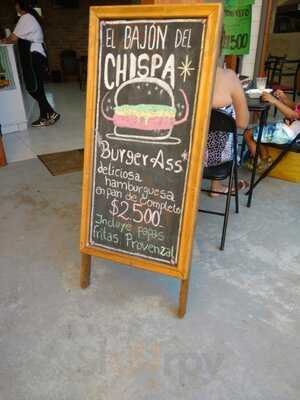 EL BAJÓN DEL
CHISPA
"BURGER-ASS"
deliciosa
hamburguesa
en pan de completo
$2.500
Incluye papas
fritas Provenzal
2.500